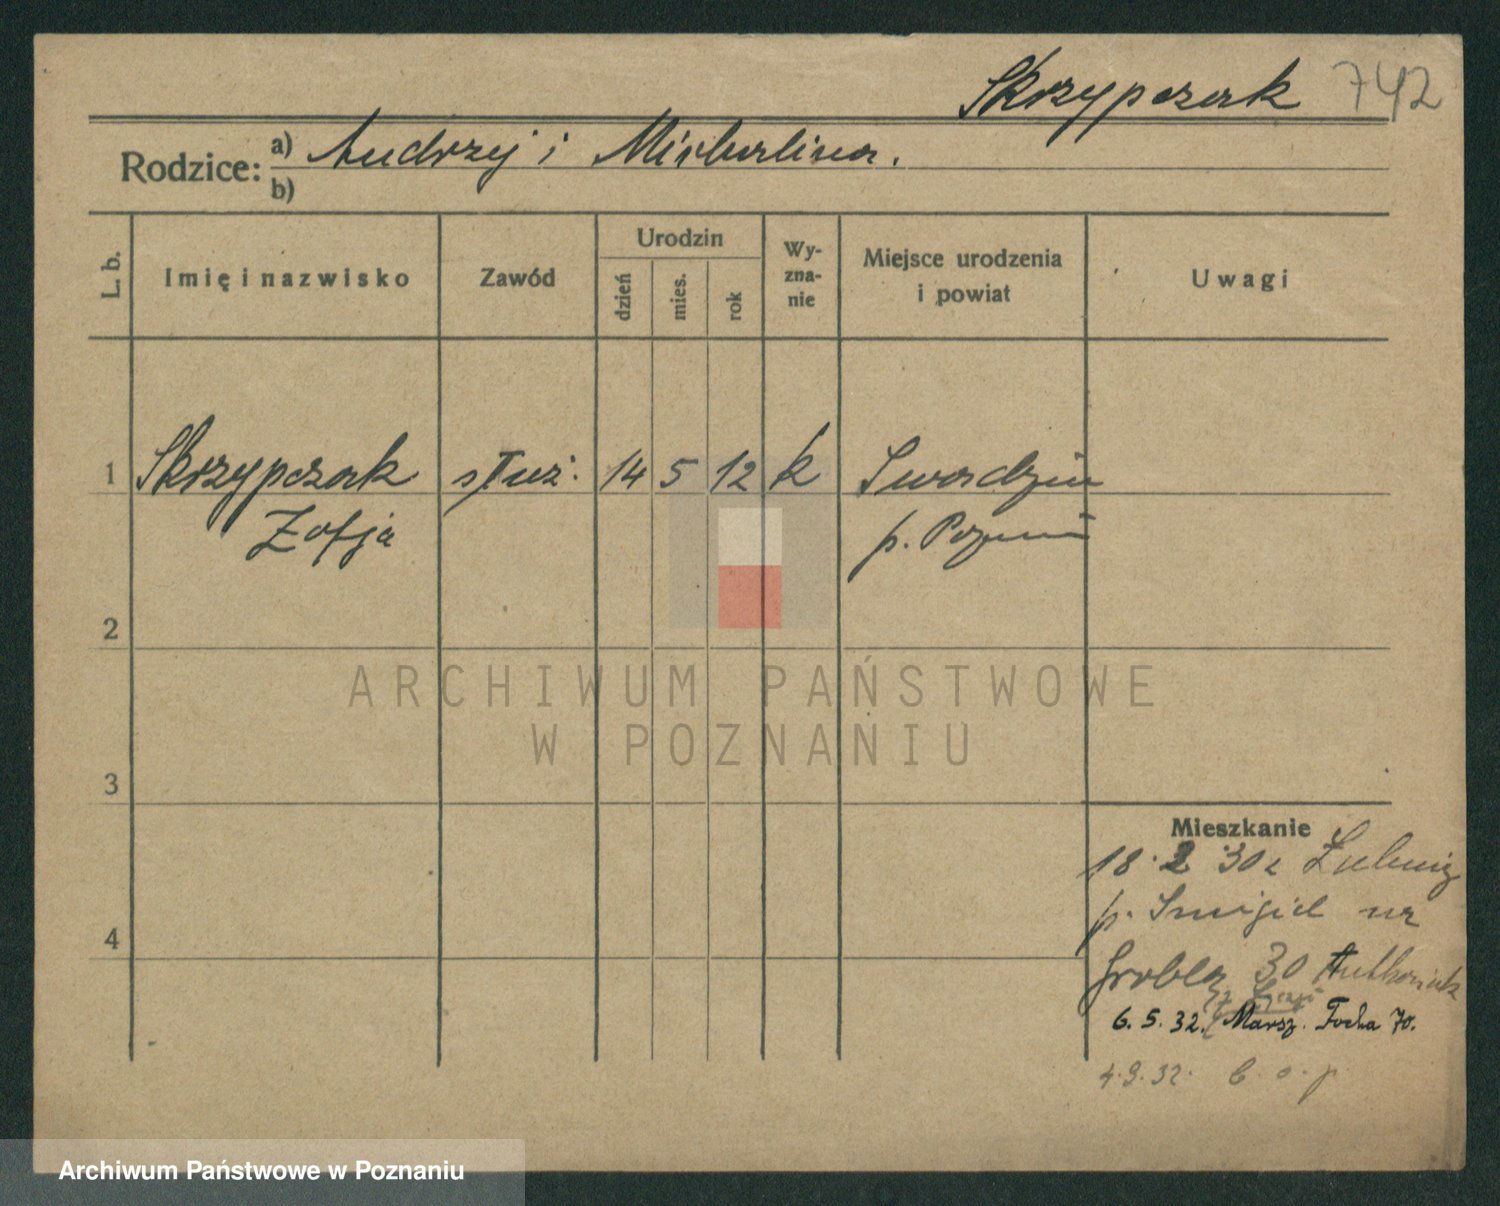 Skrzypczak 742
Rodzice: a) Andrzej i Michalina.
b)
L. b.
Imię i nazwisko
Zawód
Urodzin
dzień
mies.
rok
Wy-
zna-
nie
Miejsce urodzenia
i powiat
Uwagi
1 Skrzypczak służ. 14 5 12 k Swadzim
Zofja p. Poznań
2
ARCHIWUM PAŃSTWOWE
W POZNANIU
3
Mieszkanie
18. 2 30 z
p. Śmigiel na
4
Grobla 30
6. 5. 32. Marsz. Focha 70.
4. 9. 32. b. o. p.
Archiwum Państwowe w Poznaniu